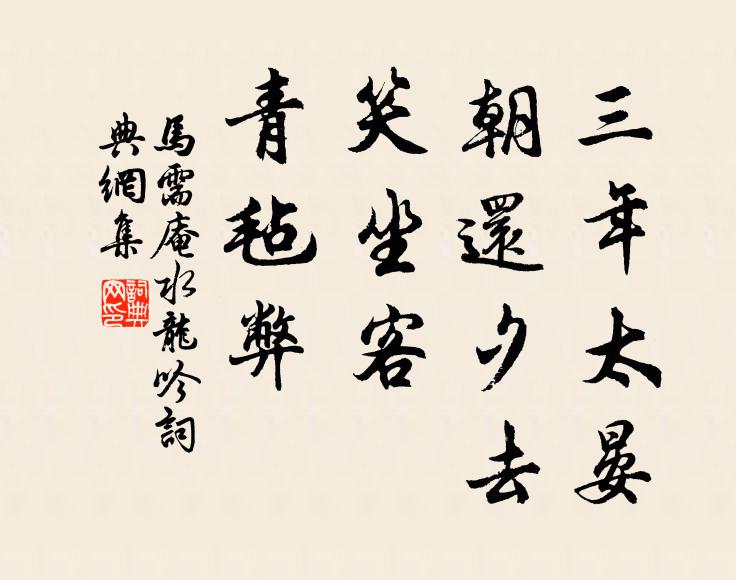 三年太晏
朝還夕去
笑坐客
青毡弊
馬需庵水龍吟詞
典網集
詞典網印